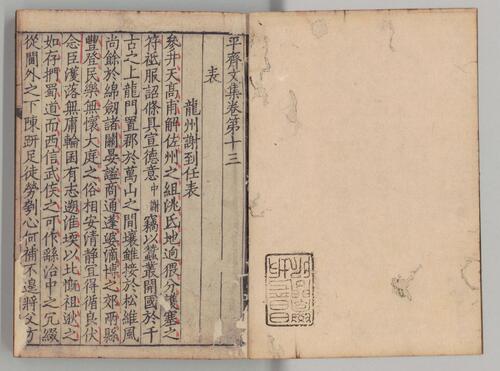 平齋文集卷第十三
表
龍州謝到任表
參井天髙甫解佐州之組洮氐地逈偎分護塞之
符祗服詔條具宣德意中謝竊以蠶叢開國於千
古之上龍門置郡於萬山之間壤雖接於松維風
尚餘於綿劒諸關晏謐商通蓬婆滴博之郊兩縣
豐登民樂無懷大庭之俗相安清静宜得循良伏
念臣濩落無庸輪囷有志遡淮堧以北慨祖逖之
如存捫蜀道而西信武侯之可作繇治中之冗綴
從閫外之下陳趼足徒勞心何補不遑將父方